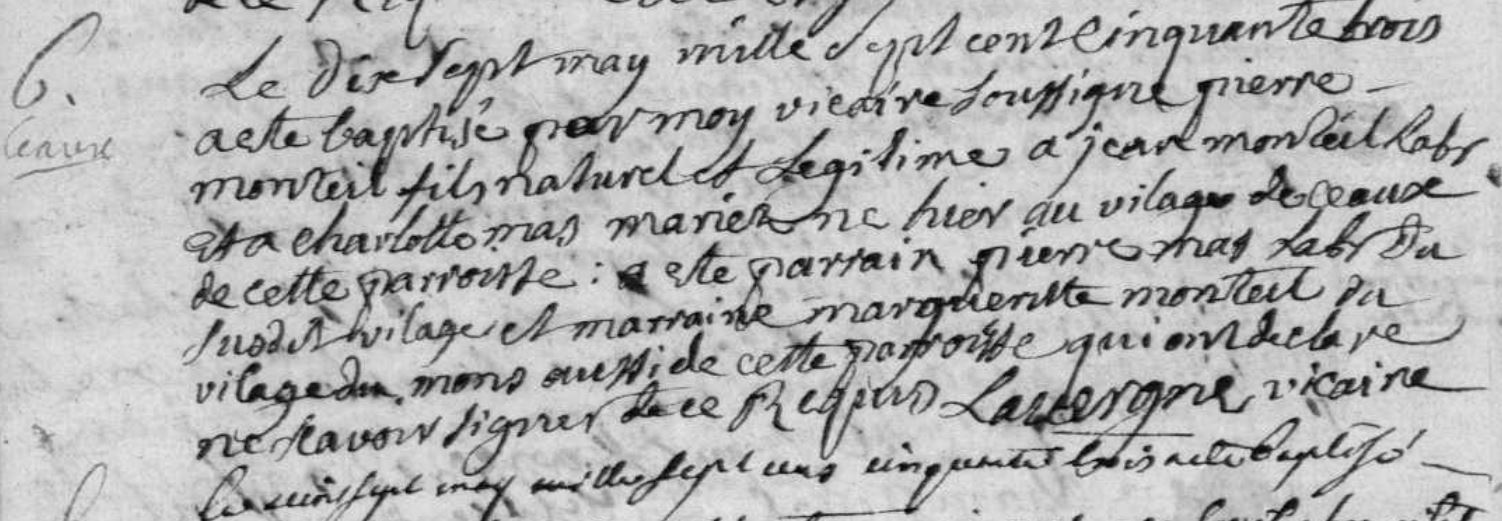 B.
Ceaux
Le dix sept may mille sept cent cinquante trois
a este baptisé par moy vicaire soussigne pierre
monteil fils naturel et Legitime a jean monteil Labr
et a charlotte mas mariez ne hier au vilage de ceaux
de cette parroisse : a este parrain pierre mas Labr du
susdit vilage et marraine marqueritte monteil du
vilage du mons aussi de cette parroisse qui ont declare
ne scavoir signer de ce Requis Lavergne vicaire
Le vint sept may mille sept cens cinquante trois a ete baptisé